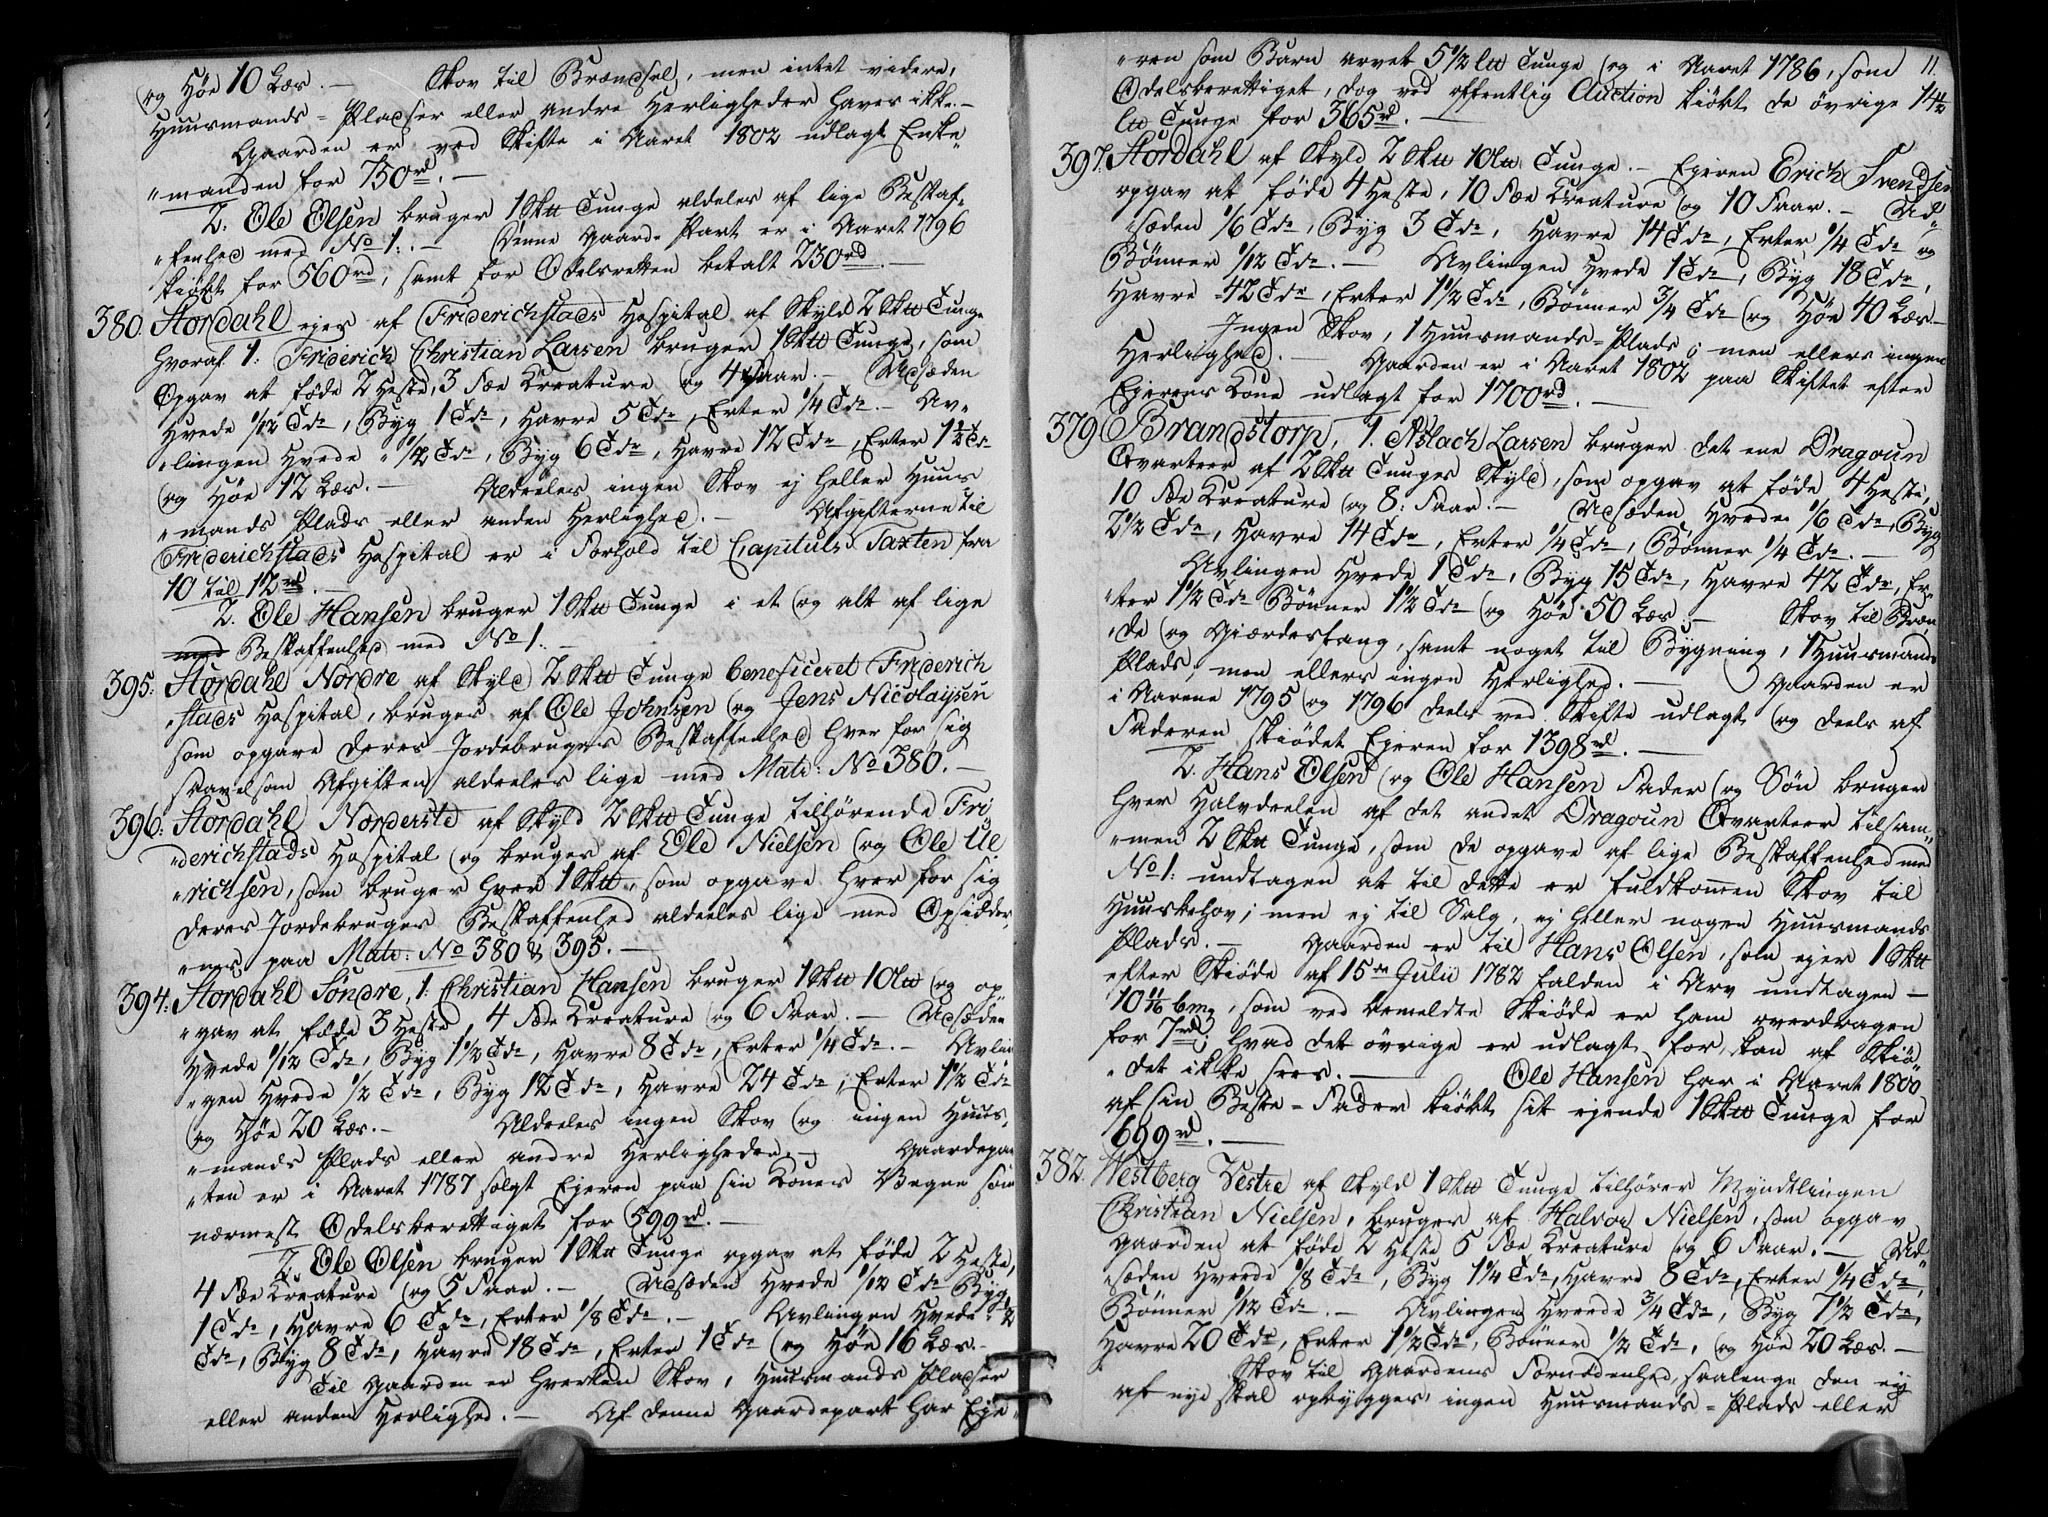 og Høe 10 Læs. — Skov til Brændsel, men intet videre,
Huusmands-Pladser eller andre Herligheder haves ikke. —
Gaarden er ved Skifte i Aaret 1802 udlagt Enke-
manden for 750 rd. —
2. Ole Olsen bruger 1 Sku Tunge aldeles af lige Beskaf-
fenhed med No 1. — Denne Gaard-Part er i Aaret 1796
kiøbt for 560 rd, samt for Odelsretten betalt 230 rd. —
380. Stordahl ejes af Friderichstads Hospital af Skyld 2 Sku Tunge
hvoraf 1: Friderich Christian Larsen bruger 1 Sku Tunge, som
Opgav at føde 2 Heste, 3 Fæe Kreature og 4 Faar. — Udsæden
Hvede 1/12 Tde, Byg 1 Tde, Havre 5 Tde, Erter 1/4 Tde. — Av-
lingen Hvede 1/2 Tde, Byg 6 Tde, Havre 12 Tde, Erter 1 1/2 Tde
og Høe 12 Læs. — Aldeeles ingen Skov ej heller Huus-
mands Plads eller anden Herlighed. — Afgifterne til
Friderichstads Hospital er i Forhold til Capituls Taxten fra
10 til 12 rd. —
2. Ole Hansen bruger 1 Sku Tunge i et og alt af lige
Beskaffenhed med No 1. —
395. Stordahl Nordre af Skyld 2 Sku Tunge beneficeret Friderich-
stads Hospital, bruges af Ole Johnsen og Jens Nicolaysen
som opgave deres Jordebruges Beskaffenhed hver for sig
saavelsom Afgiften aldeeles lige med Matr: No 380. —
396. Stordahl Norderste af Skyld 2 Sku Tunge tilhørende Fri-
derichstads Hospital og bruges af Ole Nielsen og Ole Ul-
richsen, som bruger hver 1 Sku, som opgave hver for sig
deres Jordebruges Beskaffenhed aldeeles lige med Opsidder-
nes paa Matr: No 380 & 395. —
394. Stordahl Søndre, 1. Christian Hansen bruger 1 Sku 10 lu og op-
gav at føde 3 Heste, 4 Fæe Kreature og 6 Faar. — Udsæden
Hvede 1/12 Tde, Byg 1 1/2 Tde, Havre 8 Tde, Erter 1/4 Tde. — Avlin-
gen Hvede 1/2 Tde, Byg 12 Tde, Havre 24 Tde, Erter 1 1/2 Tde
og Høe 20 Læs. — Aldeeles ingen Skov og ingen Huus-
mands Plads eller andre Herligheder. — Gaardepar-
ten er i Aaret 1787 solgt Ejeren paa sin Kones Vegne som
nærmest Odelsberettiget for 599 rd. —
2. Ole Olsen bruger 1 Sku Tunge opgav at føde 2 Heste,
4 Fæe Kreature og 5 Faar. — Udsæden Hvede 1/12 Tde Byg
1 Tde, Havre 6 Tde, Erter 1/8 Tde. — Avlingen Hvede 1/2
Tde, Byg 8 Tde, Havre 18 Tde, Erter 1 Tde og Høe 16 Læs. —
Til Gaarden er hverken Skov, Huusmands Pladser
eller anden Herlighed. — Af denne Gaardepart har Eje-
11
ren som Barn arvet 5 1/2 lu Tunge og i Aaret 1786, som
Odelsberettiget, dog ved offentlig Auction kiøbt de øvrige 14 1/2
lu Tunge for 365 rd. —
397. Stordahl af Skyld 2 Sku 10 lu Tunge. — Ejeren Erich Svendsen
opgav at føde 4 Heste, 10 Fæe Kreature og 10 Faar. — Ud-
sæden 1/6 Tde, Byg 3 Tde, Havre 14 Tde, Erter 1/4 Tde og
Bønner 1/12 Tde. — Avlingen Hvede 1 Tde, Byg 18 Tde,
Havre 42 Tde, Erter 1 1/2 Tde, Bønner 3/4 Tde og Høe 40 Læs. —
Ingen Skov, 1 Huusmands-Plads; men ellers ingen
Herlighed. — Gaarden er i Aaret 1802 paa Skiftet efter
Ejerens Kone udlagt for 1700 rd. —
379 Brandstorp, 1. Aslach Larsen bruger det ene Dragoun
Qvarteer af 2 Sku Tunges Skyld, som opgav at føde 4 Heste,
10 Fæe Kreature og 8 Faar. — Udsæden Hvede 1/6 Tde, Byg
2 1/2 Tde, Havre 14 Tde, Erter 1/4 Tde, Bønner 1/4 Tde. —
Avlingen Hvede 1 Tde, Byg 15 Tde, Havre 42 Tde, Er-
ter 1 1/2 Tde Bønner 1 1/2 Tde og Høe 50 Læs. — Skov til Bræn-
de og Giærdesfang, samt noget til Bygning, 1 Huusmands
Plads, men ellers ingen Herlighed. — Gaarden er
i Aarene 1795 og 1796 deels ved Skifte udlagt og deels af
Faderen skiødet Ejeren for 1398 rd. —
2. Hans Olsen og Ole Hansen Fader og Søn bruger
hver Halvdeelen af det andet Dragoun Qvarteer tilsam-
men 2 Sku Tunge, som de opgave af lige Beskaffenhed med
No 1: undtagen at til dette er fuldkommen Skov til
Huusbehov; men ej til Salg, ej heller nogen Huusmands
Plads. — Gaarden er til Hans Olsen, som ejer 1 Sku
efter Skiøde af 15de Julii 1782 falden i Arv undtagen —
som ved bemeldte Skiøde er ham overdragen
for 7 rd; hvad det øvrige er udlagt for, kan af Skiø-
det ikke sees. — Ole Hansen har i Aaret 1800
af sin Beste-Fader kiøbt sit ejende 1 Sku Tunge for
699 rd. —
382. Westberg Vestre af Skyld 1 Sku Tunge tilhører Myndtlingen
Christian Nielsen, bruges af Halvor Nielsen, som opgav
Gaarden at føde 2 Heste 5 Fæe Kreature og 6 Faar. — Ud-
sæden Hvede 1/8 Tde, Byg 1 1/4 Tde, Havre 8 Tde, Erter 1/4 Tde,
Bønner 1/12 Tde. — Avlingen Hvede 3/4 Tde, Byg 7 1/2 Tde,
Havre 20 Tde, Erter 1 1/2 Tde, Bønner 1/2 Tde, og Høe 20 Læs. —
Skov til Gaardens Fornødenhed, saalenge den ej
af nye skal opbygges, ingen Huusmands-Plads eller